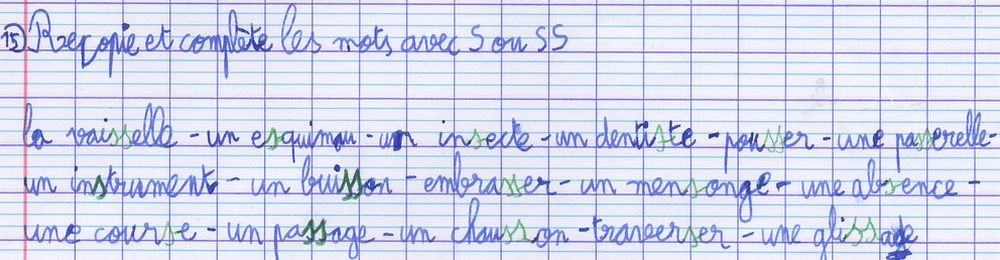 15) Recopie et complète les mots avec S ou SS
la vaisselle - un esquimau - un insecte - un dentiste - pousser - une passerelle -
un instrument - un buisson - embrasser - un mensonge - une absence -
une course - un passage - un chausson - traverser - une glissade